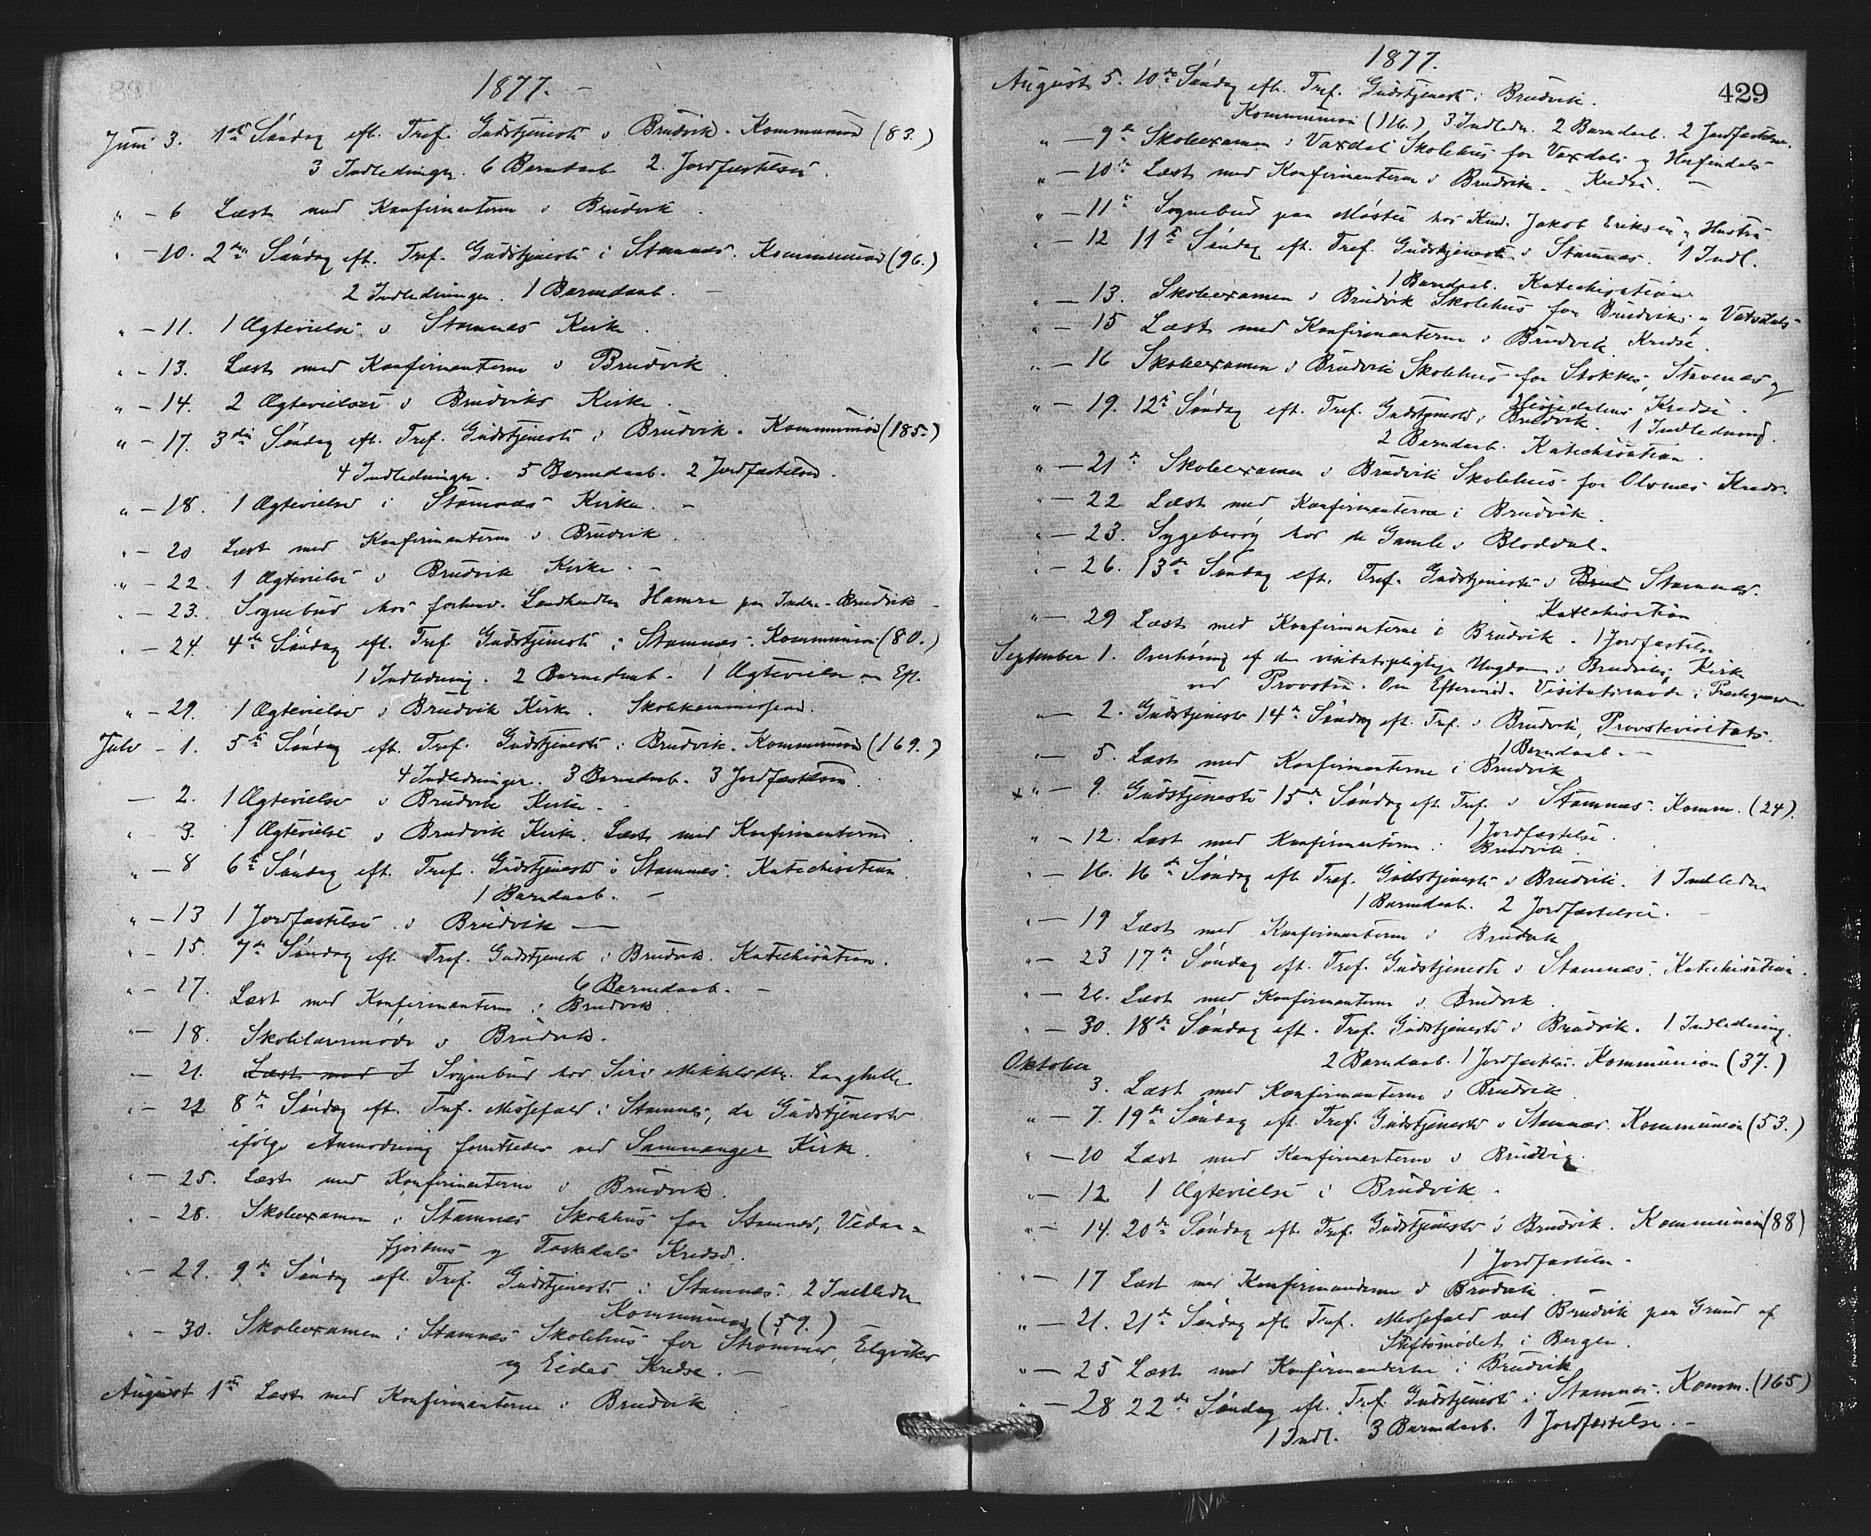 1877.
Juni 3. 1ste Søndag eft. Tref. Gudstjeneste i Brudvik. Kommunion (83.)
3 Indledninger. 6 Barnedaab 2 Jordfæstelser.
" – 6 Læst med Konfirmanterne i Brudvik.
" – 10. 2den Søndag eft. Tref. Gudstjeneste i Stamnæs. Kommunion (96.)
2 Indledninger. 1 Barnedaab. –
" – 11. 1 Ægtevielse i Stamnæs Kirke.
" – 13. Læst med Konfirmanterne i Brudvik
" – 14. 2 Ægtevielser i Brudviks Kirke.
" – 17. 3die Søndag eft. Tref. Gudstjeneste i Brudvik. Kommunion (185.)
4 Indledninger. 5 Barnedaab. 2 Jordfæstelser.
" – 18. 1 Ægtevielse i Stamnæs Kirke. –
" – 20 Læst med Konfirmanterne i Brudvik.
" – 22. 1 Ægtevielse i Brudvik Kirke. –
– 23. Sognebud hos forhenv. Landhandler Hamre paa Indre-Brudvik
– 24. 4de Søndag eft. Tref. Gudstjeneste i Stamnæs. Kommunion (80.)
1 Indledning. 2 Barnedaab. 1 Ægtevielse Eft.
" – 29. 1 Ægtevielse i Brudvik Kirke. Skolekommission.
Juli – 1. 5te Søndag eft. Tref. Gudstjeneste i Brudvik. Kommunion (169.)
4 Indledninger. 3 Barnedaab. 3 Jordfæstelser.
– 2. 1 Ægtevielse i Brudvik Kirke. –
" – 3. 1 Ægtevielse i Brudvik Kirke. Læst med Konfirmanterne.
" – 8 6te Søndag eft. Tref. Gudstjeneste i Stamnæs. Katechisation.
1 Barnedaab. –
" – 13 1 Jordfæstelse i Brudvik –
" – 15. 7de Søndag eft. Tref. Gudstjeneste i Brudvik. Katechisation.
6 Barnedaab. –
" – 17. Læst med Konfirmanterne i Brudvik.
" – 18. Skolelærermøde i Brudvik.
– 21. Læst med Sognebud hos Siri Mikkelsdtr. Langhelle
" – 22 8de Søndag eft. Tref. Messefald i Stamnæs, da Gudstjeneste
ifølge Anmodning forrettedes ved Samnanger Kirke.
" – 25. Læst med Konfirmanterne i Brudvik.
– 28. Skoleexamen i Stamnæs Skolehus for Stamnæs, Vedar=
fjordens og Taskdals Kredse.
" – 29. 9de Søndag eft. Tref. Gudstjeneste i Stamnæs. 2 Indledn.
Kommunion (59.)
" – 30. Skoleexamen i Stamnæs Skolehus for Straumer, Elgviker
og Eides Kredse. –
August 1ste Læst med Konfirmanterne i Brudvik
1877.
429
August 5. 10de Søndag eft. Tref. Gudstjeneste i Brudvik.
Kommunion (116.) 3 Indledn. 2 Barnedaab. 2 Jordfæstelser.
" – 9de Skoleexamen i Vaxdal Skolehus for Vaxdals og Herfindals
Kredse. –
" – 10de Læst med Konfirmanterne i Brudvik.
" – 11te Sognebud paa Mostre hos Kmd. Jakob Eriksen og Hustru.
" – 12 11te Søndag eft. Tref. Gudstjeneste i Stamnæs. 1 Indl.
1 Barnedaab. Katechisation.
" – 13. Skoleexamen i Brudvik Skolehus for Brudviks og Vatsdals
Kredse.
" – 15 Læst med Konfirmanterne i Brudvik.
" – 16 Skoleexamen i Brudvik Skolehus for Stokke, Stavenæs og
Hessjedalens Kredse.
" – 19. 12te Søndag eft. Tref. Gudstjeneste i Brudvik. 1 Indledning.
2 Barnedaab. Katechisation.
" – 21de Skoleexamen i Brudvik Skolehus for Olsnæs Kreds.
– 22 Læst med Konfirmanterne i Brudvik.
" – 23. Sygebesøg hos de Gamle i Bloddal.
– 26. 13de Søndag eft. Tref. Gudstjeneste i Brud Stamnæs.
Katechisation
" – 29 Læst med Konfirmanterne i Brudvik. 1 Jordfæstelse
September 1. Overhøring af den visitatspligtige Ungdom i Brudviks Kirke
ved Provsten. Om Eftermid. Visitatsmøde i Præstegaarden
" – 2. Gudstjeneste 14de Søndag eft. Tref. i Brudvik, Provstevisitats.
1 Barnedaab –
" – 5. Læst med Konfirmanterne i Brudvik
x " – 9. Gudstjeneste 15de Søndag eft. Tref. i Stamnæs. Komm. (24).
1 Jordfæstelse.
" – 12. Læst med Konfirmanterne i Brudvik.
" – 16. 16de Søndag eft. Tref. Gudstjeneste i Brudvik. 1 Indledn.
1 Barnedaab. 2 Jordfæstelser.
" – 19 Læst med Konfirmanterne i Brudvik
" – 23 17de Søndag eft. Tref. Gudstjeneste i Stamnæs. Katechisation.
" – 26. Læst med Konfirmanterne i Brudvik
" – 30. 18de Søndag eft. Tref. Gudstjeneste i Brudvik. 1 Indledning.
2 Barnedaab. 1 Jordfæstelse. Kommunion (37.)
Oktober
3. Læst med Konfirmanterne i Brudvik.
" – 7. 19de Søndag eft. Tref. Gudstjeneste i Stamnæs. Kommunion (53.)
" – 10 Læst med Konfirmanterne i Brudvig.
" – 12 1 Ægtevielse i Brudvik.
" – 14. 20de Søndag eft. Tref. Gudstjeneste i Brudvik. Kommunion (88)
1 Jordfæstelse. –
" – 17 Læst med Konfirmanderne i Brudvik. –
" – 21. 21de Søndag eft. Tref. Messefald ved Brudvik paa Grund af
Stiftsmødet i Bergen.
" – 25 Læst med Konfirmanderne i Brudvik
– 28 22de Søndag eft. Tref. Gudstjeneste i Stamnæs. Komm. (165)
1 Indl. 3 Barnedaab. 1 Jordfæstelse. –